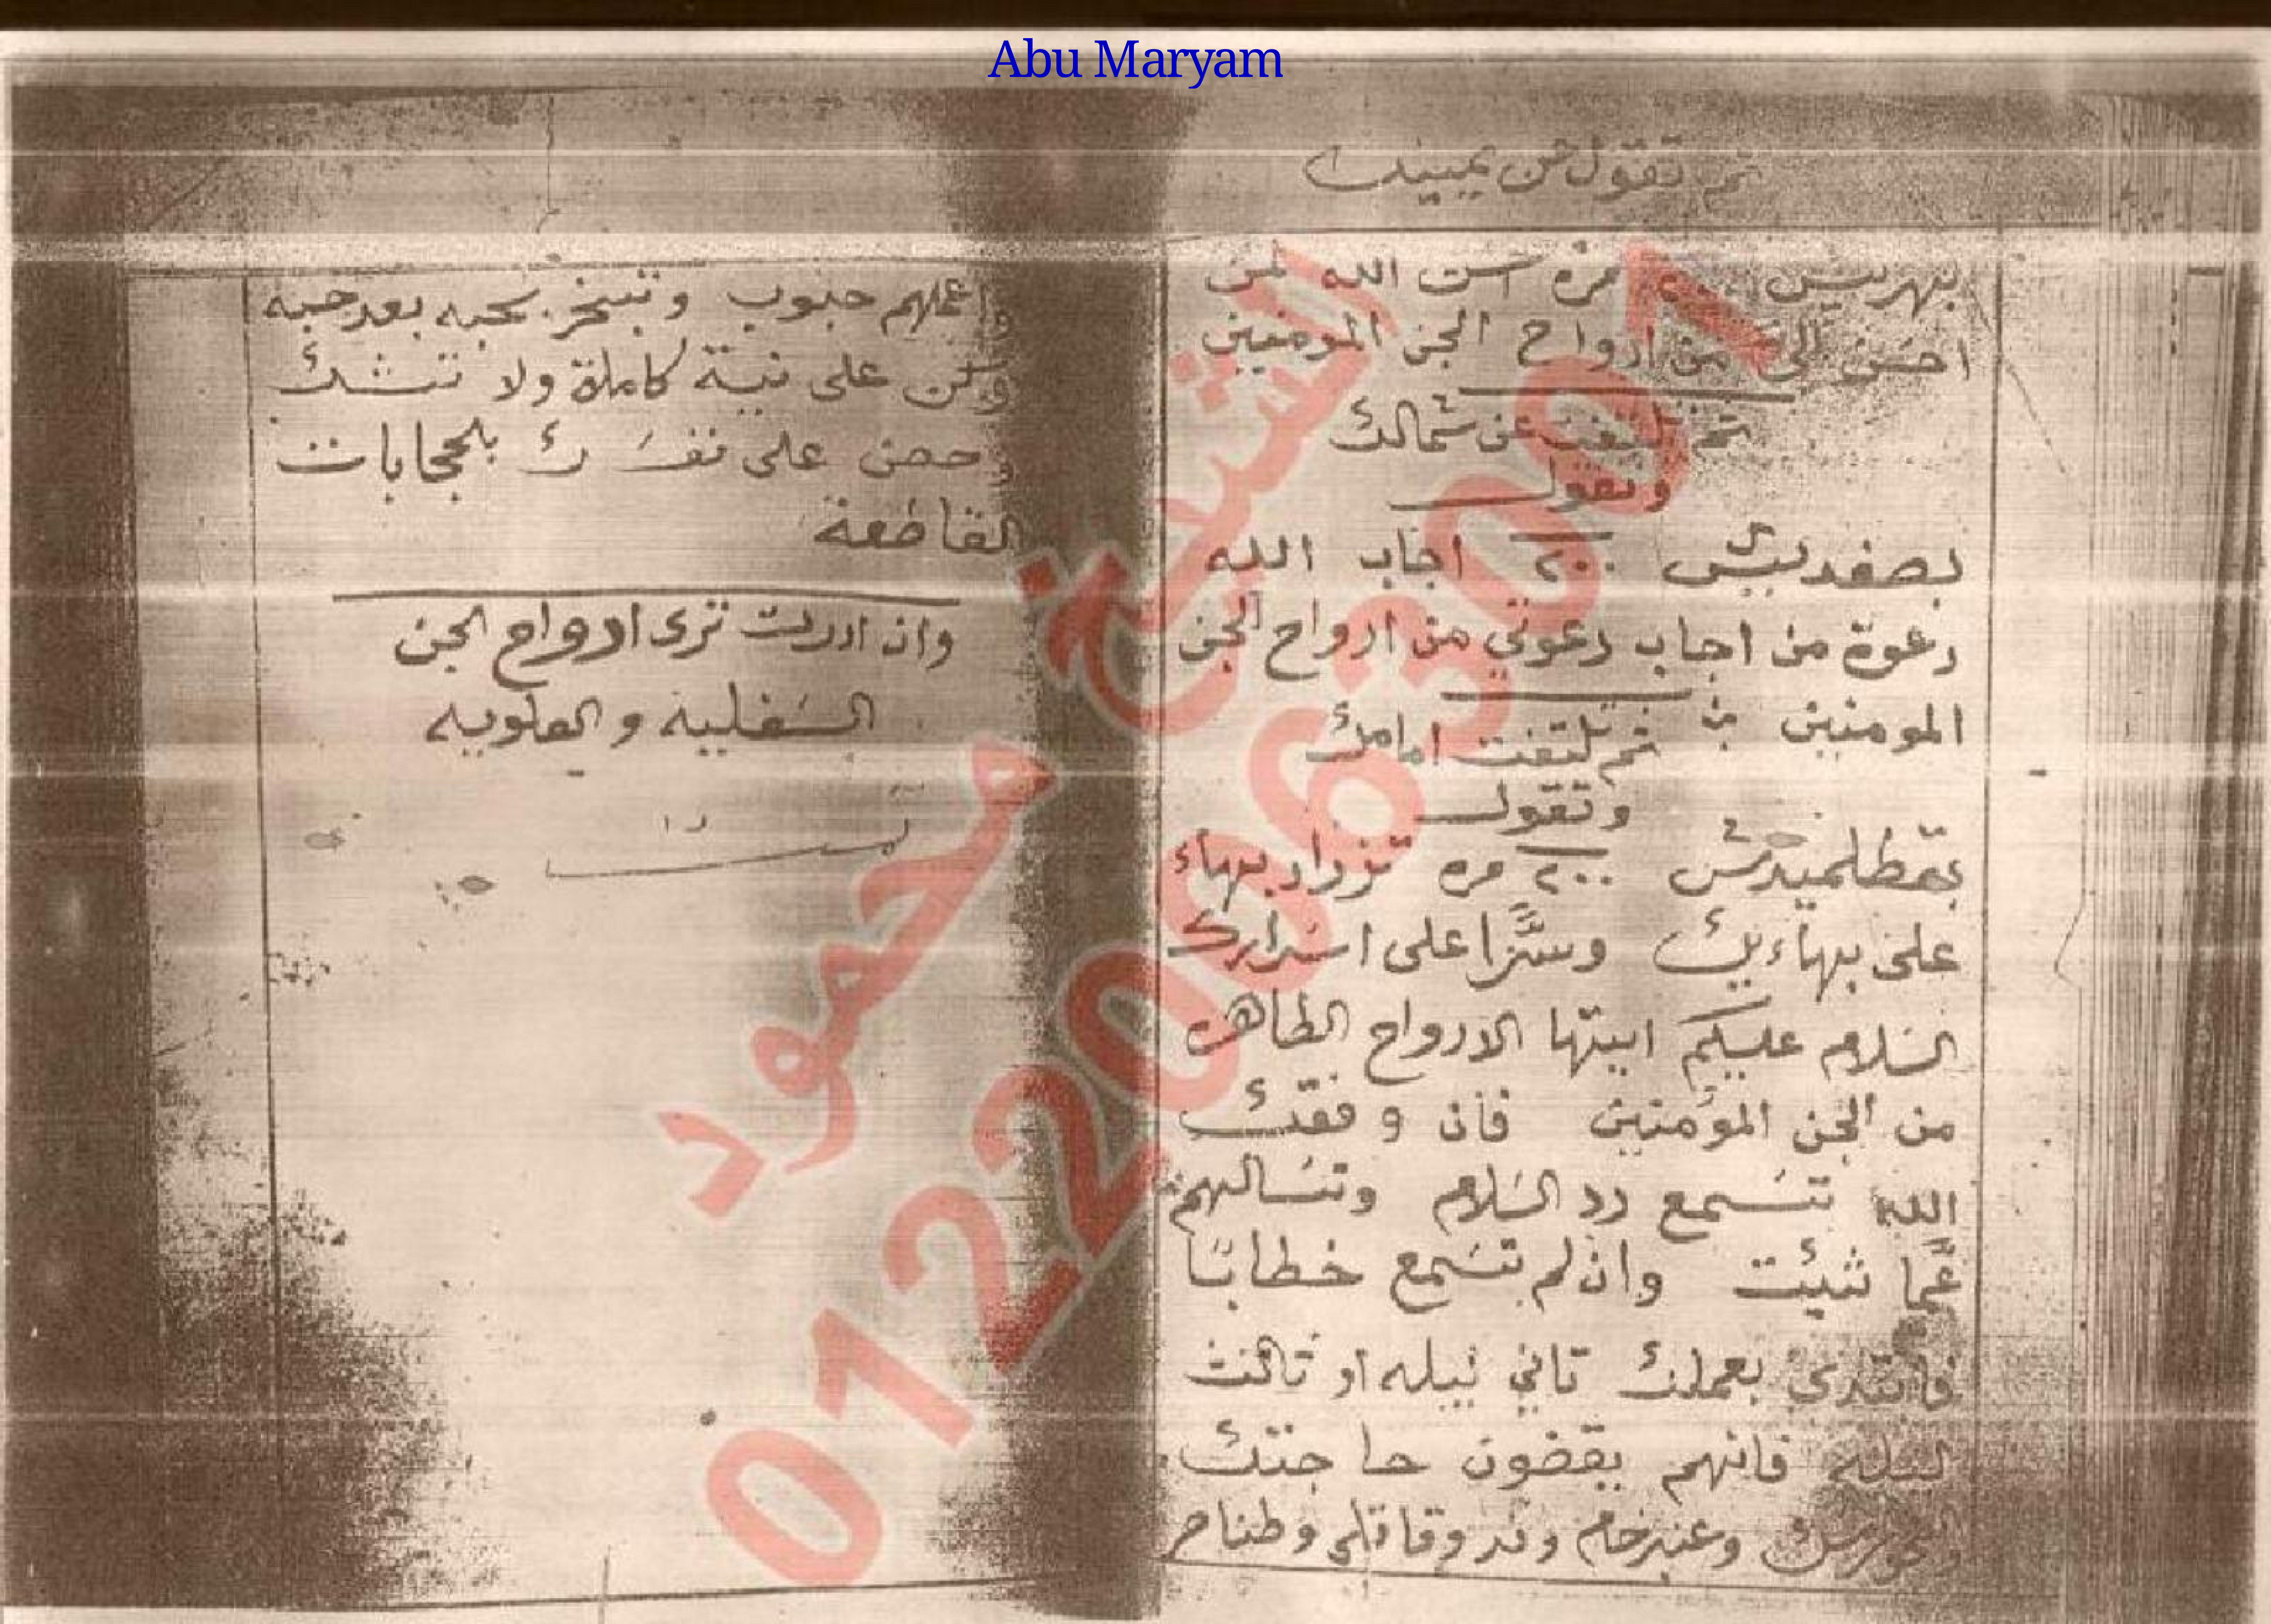 Abu Maryam
ثم تقول عن يمينك
بهريش مره الله لمن
احسن الي من ارواح الجن المومنين
ثم تلتفت عن شمالك
وتقول
بصفديش ٢٠٠ اجاب الله
دعوة من اجاب دعوتي من ارواح الجن
المومنين ثم تلتفت امامك
وتقول
٢٠٠ مره تزداد بهاء
على بهاءيك وسترا على اسرارك
السلام عليكم ايتها الارواح الطاهره
من الجن المؤمنين فان وفقك
الله تسمع رد السلام وتسالهم
عما شئت وان لم تسمع خطابا
فابتدي بعملك تاني ليله او تالت
ليله فانهم يقضون حاجتك
وعنبر خام
واعملهم حبوب وتبخر بحبه بعد حبه
وكن على نية كاملة ولا تشك
وحصن على نفسك بلحجابات
القاطعة
وان اردت ترى ارواح الجن
السفليه والعلويه
الشيخ محمود
01220063001